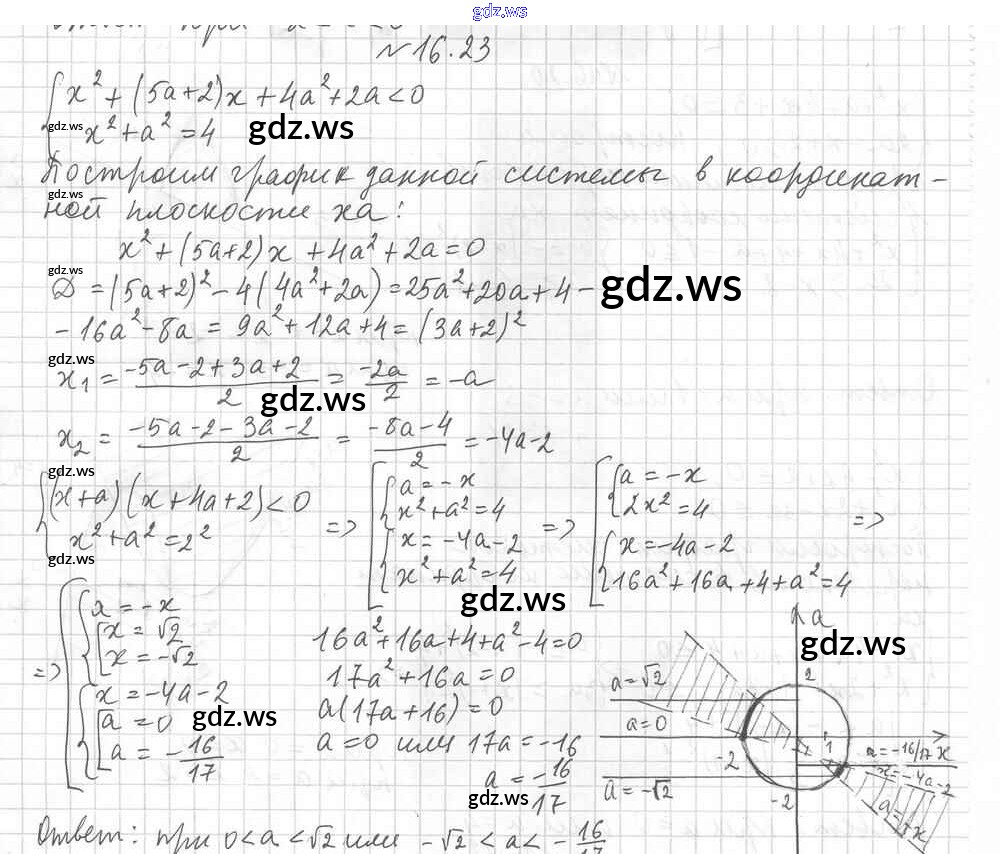 gdz.ws
№16.23
x² + (5a+2)x + 4a² + 2a < 0
gdz.ws x² + a² = 4 gdz.ws
Построим график данной системы в координат-
gdz.ws
ной плоскости xa:
x² + (5a+2)x + 4a² + 2a = 0
gdz.ws
D = (5a+2)² - 4(4a² + 2a) = 25a² + 20a + 4 - gdz.ws
- 16a² - 8a = 9a² + 12a + 4 = (3a+2)²
gdz.ws
x₁ = (-5a-2+3a+2)/2 = -2a/2 = -a
gdz.ws
x₂ = (-5a-2-3a-2)/2 = (-8a-4)/2 = -4a-2
gdz.ws
{(x+a)(x+4a+2)<0 x²+a²=2² => [{a=-x x²+a²=4 {x=-4a-2 x²+a²=4 => [{a=-x 2x²=4 {x=-4a-2 16a²+16a+4+a²=4 =>
gdz.ws
gdz.ws
=> [{a=-x [x=√2 x=-√2 {x=-4a-2 [a=0 a=-16/17
gdz.ws
16a²+16a+4+a²-4=0
17a²+16a=0
a(17a+16)=0
a=0 или 17a=-16
a=-16/17
gdz.ws
a
gdz.ws
2
a=√2
a=0
1
-2
a=-16/17 x
x=-4a-2
a=-√2
-2
a=-x
Ответ: при 0<a<√2 или -√2<a<-16/17